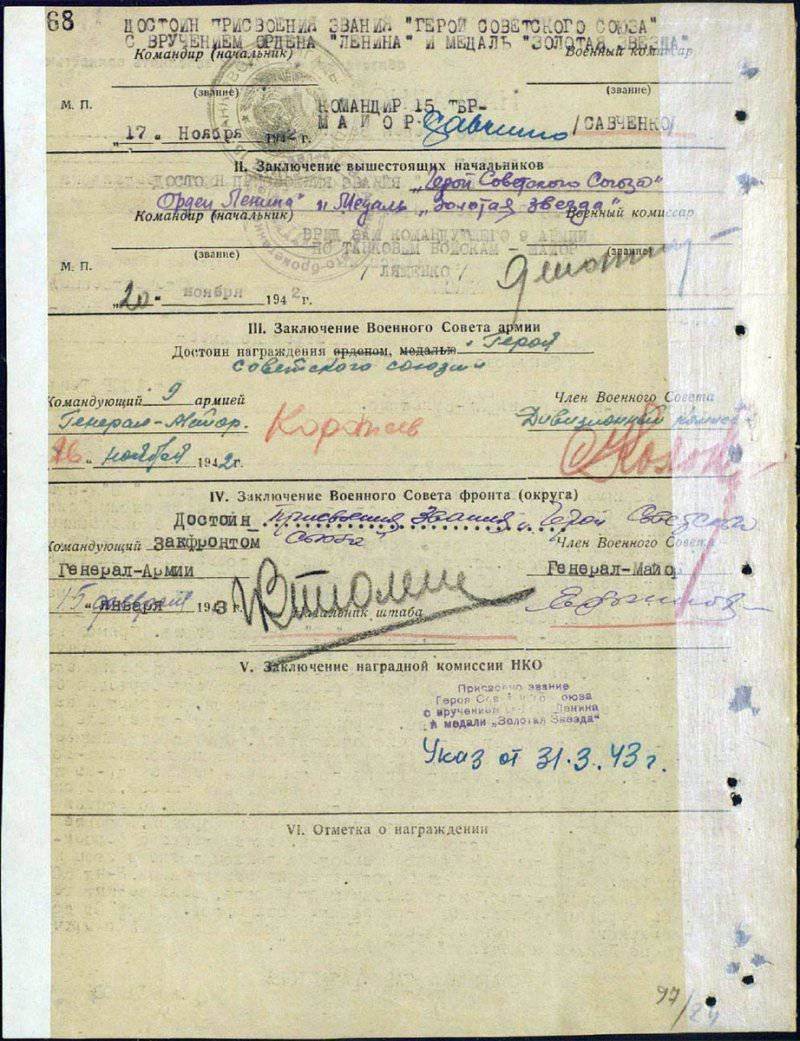 68
ДОСТОИН ПРИСВОЕНИЯ ЗВАНИЯ "ГЕРОЙ СОВЕТСКОГО СОЮЗА"
С ВРУЧЕНИЕМ ОРДЕНА "ЛЕНИНА" И МЕДАЛЬ "ЗОЛОТАЯ ЗВЕЗДА"
Командир (начальник) Военный комиссар
(звание) (звание)
М. П. КОМАНДИР 15 ТБР-
МАЙОР Савченко /САВЧЕНКО/
"17" Ноября 1942 г.
II. Заключение вышестоящих начальников
ДОСТОИН ПРИСВОЕНИЯ ЗВАНИЯ „Герой Советского Союза"
Орден Ленина" и Медаль „Золотая звезда"
Командир (начальник) Военный комиссар
ВРИД ЗАМ КОМАНДУЮЩЕГО 9 АРМИИ
(звание) ПО ТАНКОВЫМ ВОЙСКАМ – МАЙОР (звание)
М. П. / ЛЯЩЕНКО /
"20" ноября 1942 г.
III. Заключение Военного Совета армии
Достоин награждения орденом, медалью „Героя
Советского союза"
Командующий 9 армией Член Военного Совета
Генерал-Майор. Коротеев Дивизионный комис
"26" ноября 1942 г.
IV. Заключение Военного Совета фронта (округа)
Достоин присвоения звания „Герой Советского
Союза"
Командующий Закфронтом Член Военного Совета
Генерал-Армии Генерал-Майор
"15" февраля января 1943 г. Тюленев Ефимов
Начальник штаба
V. Заключение наградной комиссии НКО
Присвоено звание
Героя Советского Союза
с вручением ордена Ленина
и медали „Золотая Звезда"
Указ от 31.3.43 г.
VI. Отметка о награждении
97/24